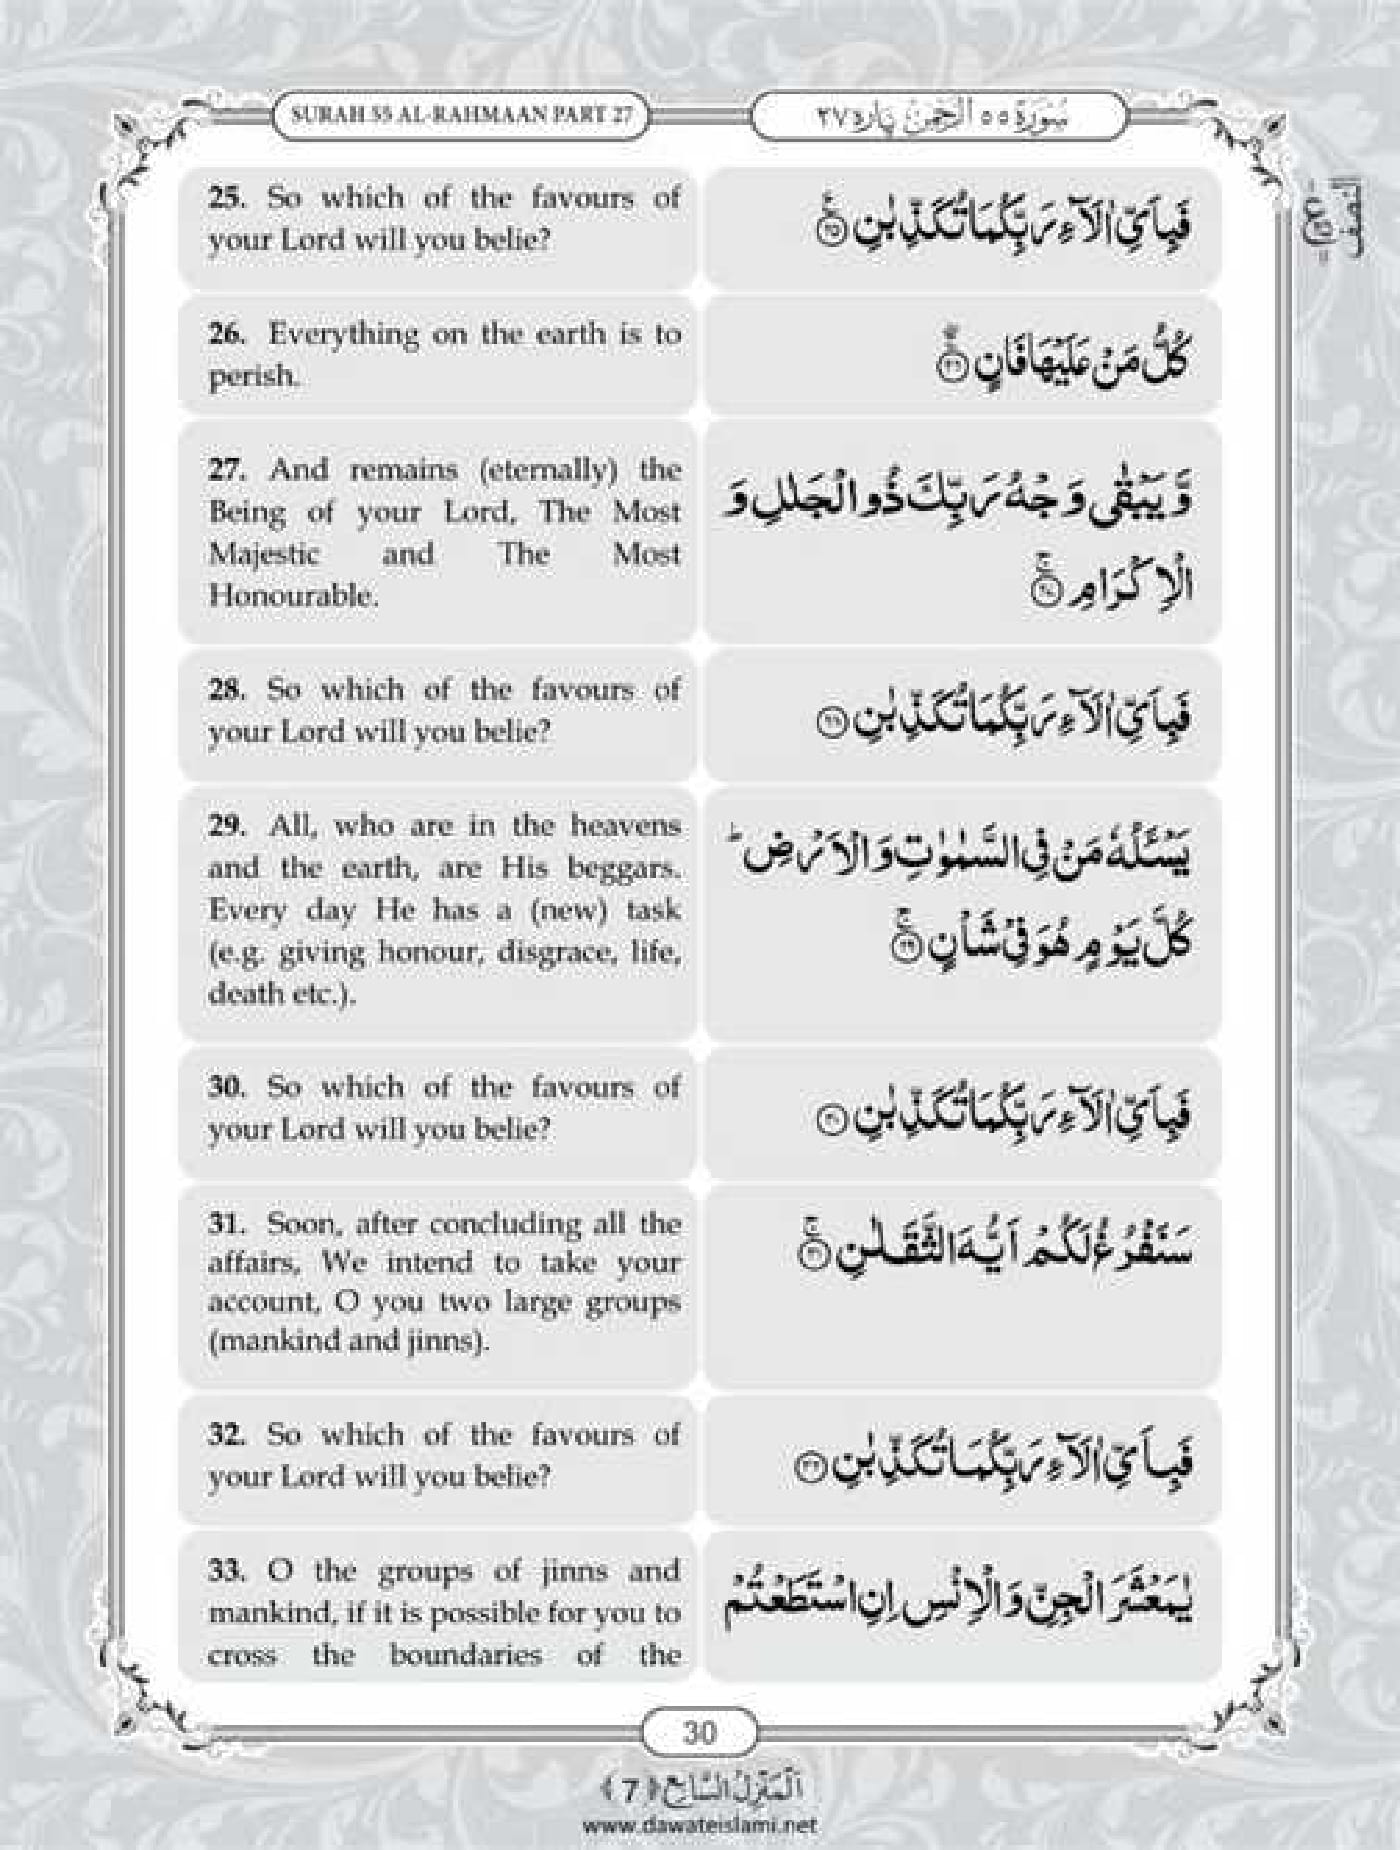 SURAH 55 AL-RAHMAAN PART 27
سُوْرَةُ ٥٥ الرَّحْمٰن پاره ٢٧
25. So which of the favours of
your Lord will you belie?
فَبِاَيِّ اٰلَآءِ رَبِّكُمَا تُكَذِّبٰنِ ﴿٢٥﴾
26. Everything on the earth is to
perish.
كُلُّ مَنْ عَلَيْهَا فَانٍ ﴿٢٦﴾
27. And remains (eternally) the
Being of your Lord, The Most
Majestic and The Most
Honourable.
وَّ يَبْقٰى وَجْهُ رَبِّكَ ذُو الْجَلٰلِ وَ
الْاِكْرَامِ ﴿٢٧﴾
28. So which of the favours of
your Lord will you belie?
فَبِاَيِّ اٰلَآءِ رَبِّكُمَا تُكَذِّبٰنِ ﴿٢٨﴾
29. All, who are in the heavens
and the earth, are His beggars.
Every day He has a (new) task
(e.g. giving honour, disgrace, life,
death etc.).
يَسْـَٔلُهٗ مَنْ فِي السَّمٰوٰتِ وَ الْاَرْضِ ؕ
كُلَّ يَوْمٍ هُوَ فِيْ شَاْنٍ ﴿٢٩﴾
30. So which of the favours of
your Lord will you belie?
فَبِاَيِّ اٰلَآءِ رَبِّكُمَا تُكَذِّبٰنِ ﴿٣٠﴾
31. Soon, after concluding all the
affairs, We intend to take your
account, O you two large groups
(mankind and jinns).
سَنَفْرُغُ لَكُمْ اَيُّهَ الثَّقَلٰنِ ﴿٣١﴾
32. So which of the favours of
your Lord will you belie?
فَبِاَيِّ اٰلَآءِ رَبِّكُمَا تُكَذِّبٰنِ ﴿٣٢﴾
33. O the groups of jinns and
mankind, if it is possible for you to
cross the boundaries of the
يٰمَعْشَرَ الْجِنِّ وَ الْاِنْسِ اِنِ اسْتَطَعْتُمْ
النصف
30
اَلْمَنْزِلُ السَّابِع ﴿7﴾
www.dawateislami.net